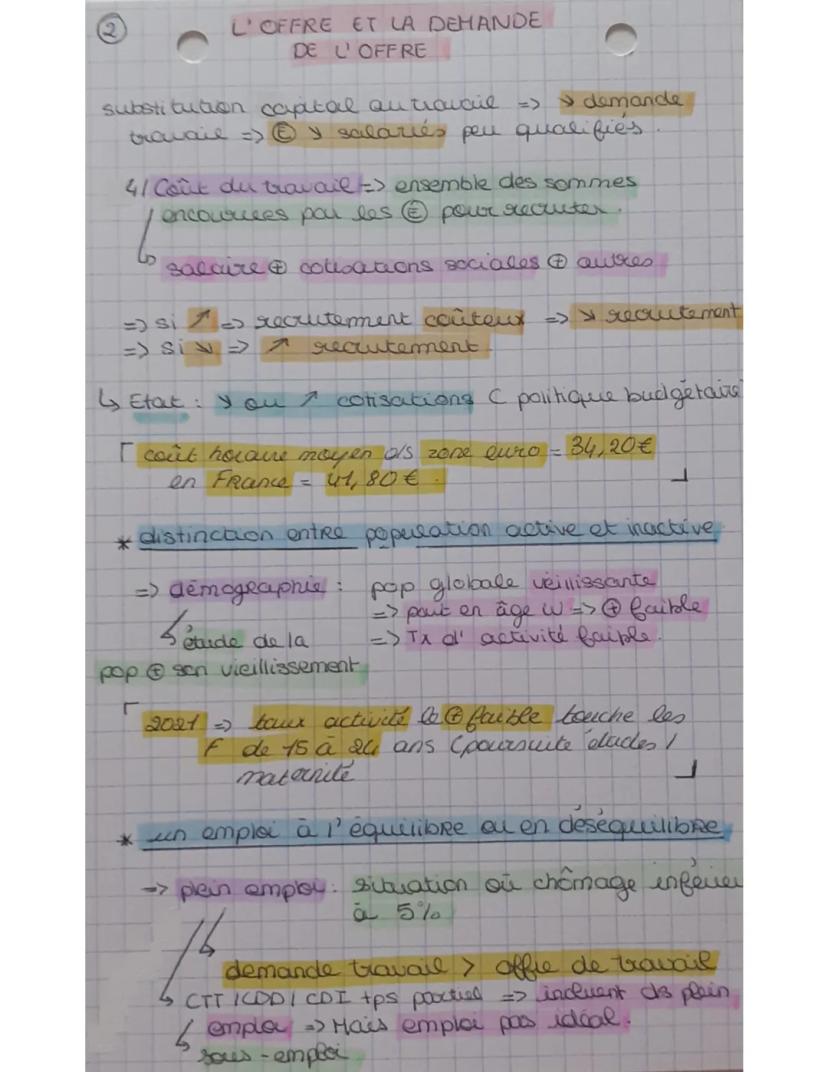 ②
L'OFFRE ET LA DEMANDE
DE L'OFFRE
substitution capital au travail => ↘ demande
travail => Ⓔ ↘ salariés peu qualifiés.
4/ Coût du travail => ensemble des sommes
encourues par les Ⓔ pour recruter.
↳ salaire ⊕ cotisations sociales ⊕ autres
=> si ↗ => recrutement coûteux => ↘ recrutement
=> si ↘ => ↗ recrutement
↳ Etat : ↘ ou ↗ cotisations ( politique budgétaire
⌈ coût horaire moyen ds zone euro = 34,20€
en France = 41,80€. ⌋
* distinction entre population active et inactive
=> démographie : pop globale vieillissante
=> part en âge W => ⊕ faible
↳ étude de la => Tx d'activité faible.
pop ⊕ son vieillissement
⌈ 2021 => taux activité le ⊕ faible touche les
F de 15 à 24 ans (poursuite études /
maternité ⌋
* un emploi à l'équilibre ou en déséquilibre
=> plein emploi : situation où chômage inférieur
à 5%
↳ demande travail > offre de travail
↳ CTT / CDD / CDI tps partiel => incluent ds plein
emploi => Mais emploi pas idéal.
↳ sous-emploi